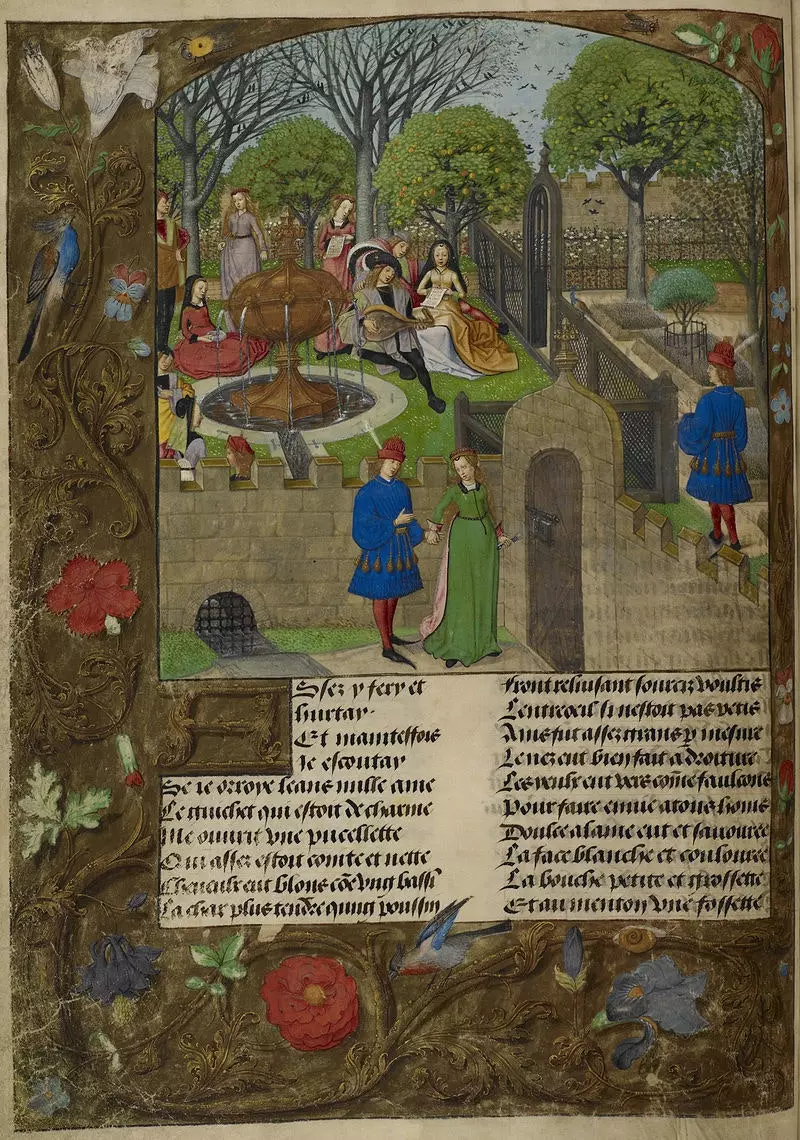 Assez y fery et
hurtay.
Et maintesfois
Je escoutay
Se ie orroye leans nulle ame
Le guichet qui estoit de charme
Me ouurit vne pucellette
Qui assez estoit cointe et nette
Cheueulx eut blons cõe vng bassi
La char plus tendre qung poussin
Front reluisant sourcix voultis
Lentreoeil si nestoit pas petis
Ains fut assez grans p mesure
Le nez eut bien fait a droiture
Les yeulx eut vers cõme faulcons
Pour faire enuie a tous homs
Doulce alaine eut et sauouree
La face blanche et coulouree
La bouche petite et grossette
Et au menton vne fossette